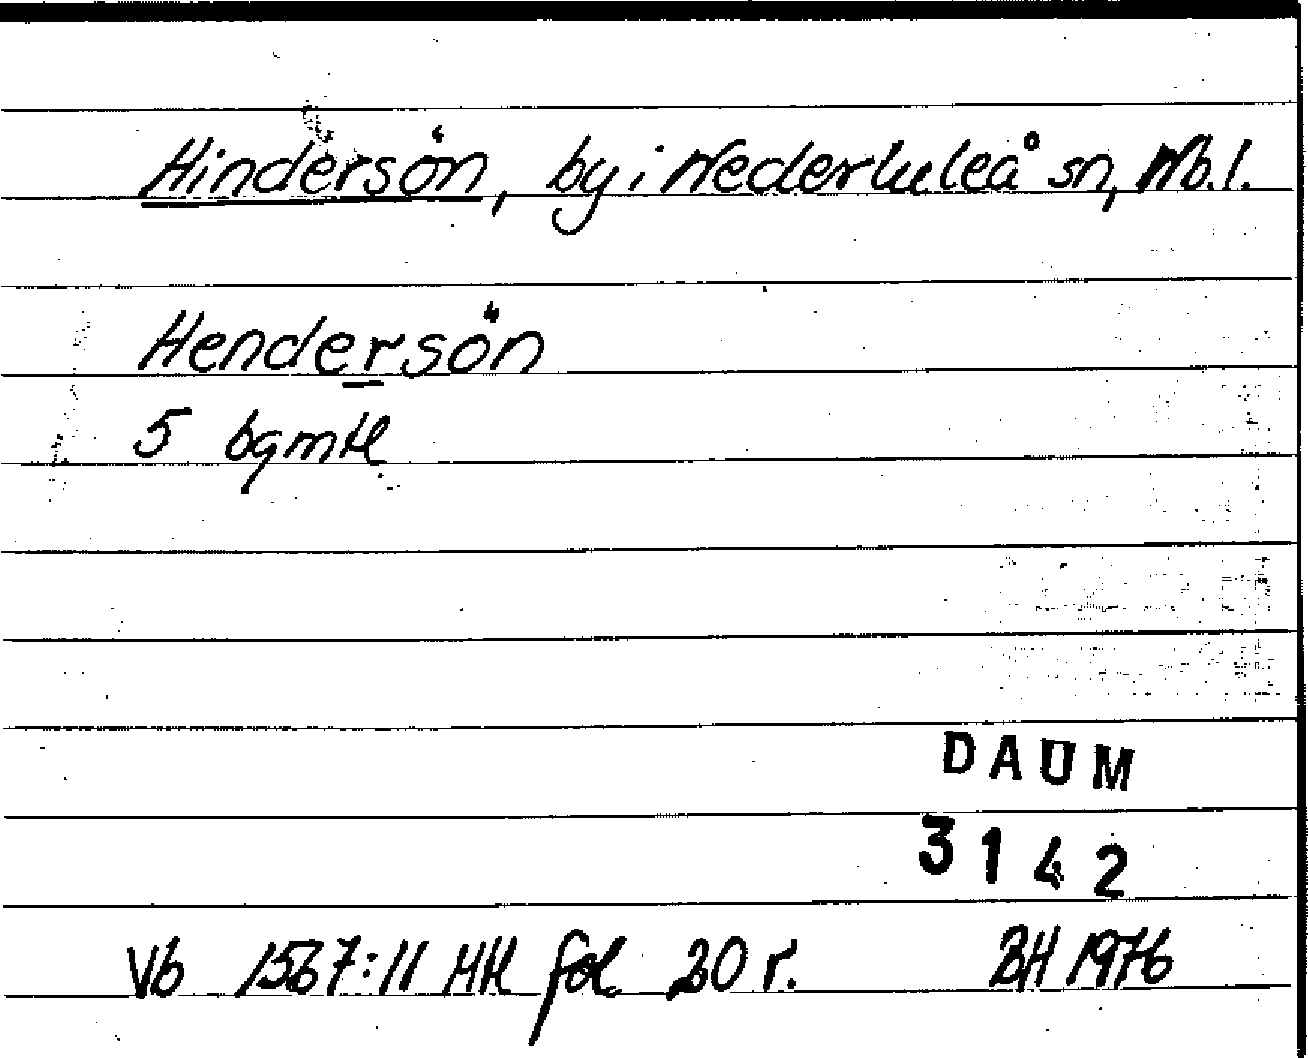 Hindersön, by i Nederluleå sn, Nb.l.
Hendersön
5 bgmtl
DAUM
3142
Vb 1567:11 HH fol. 20 r. BH 1976